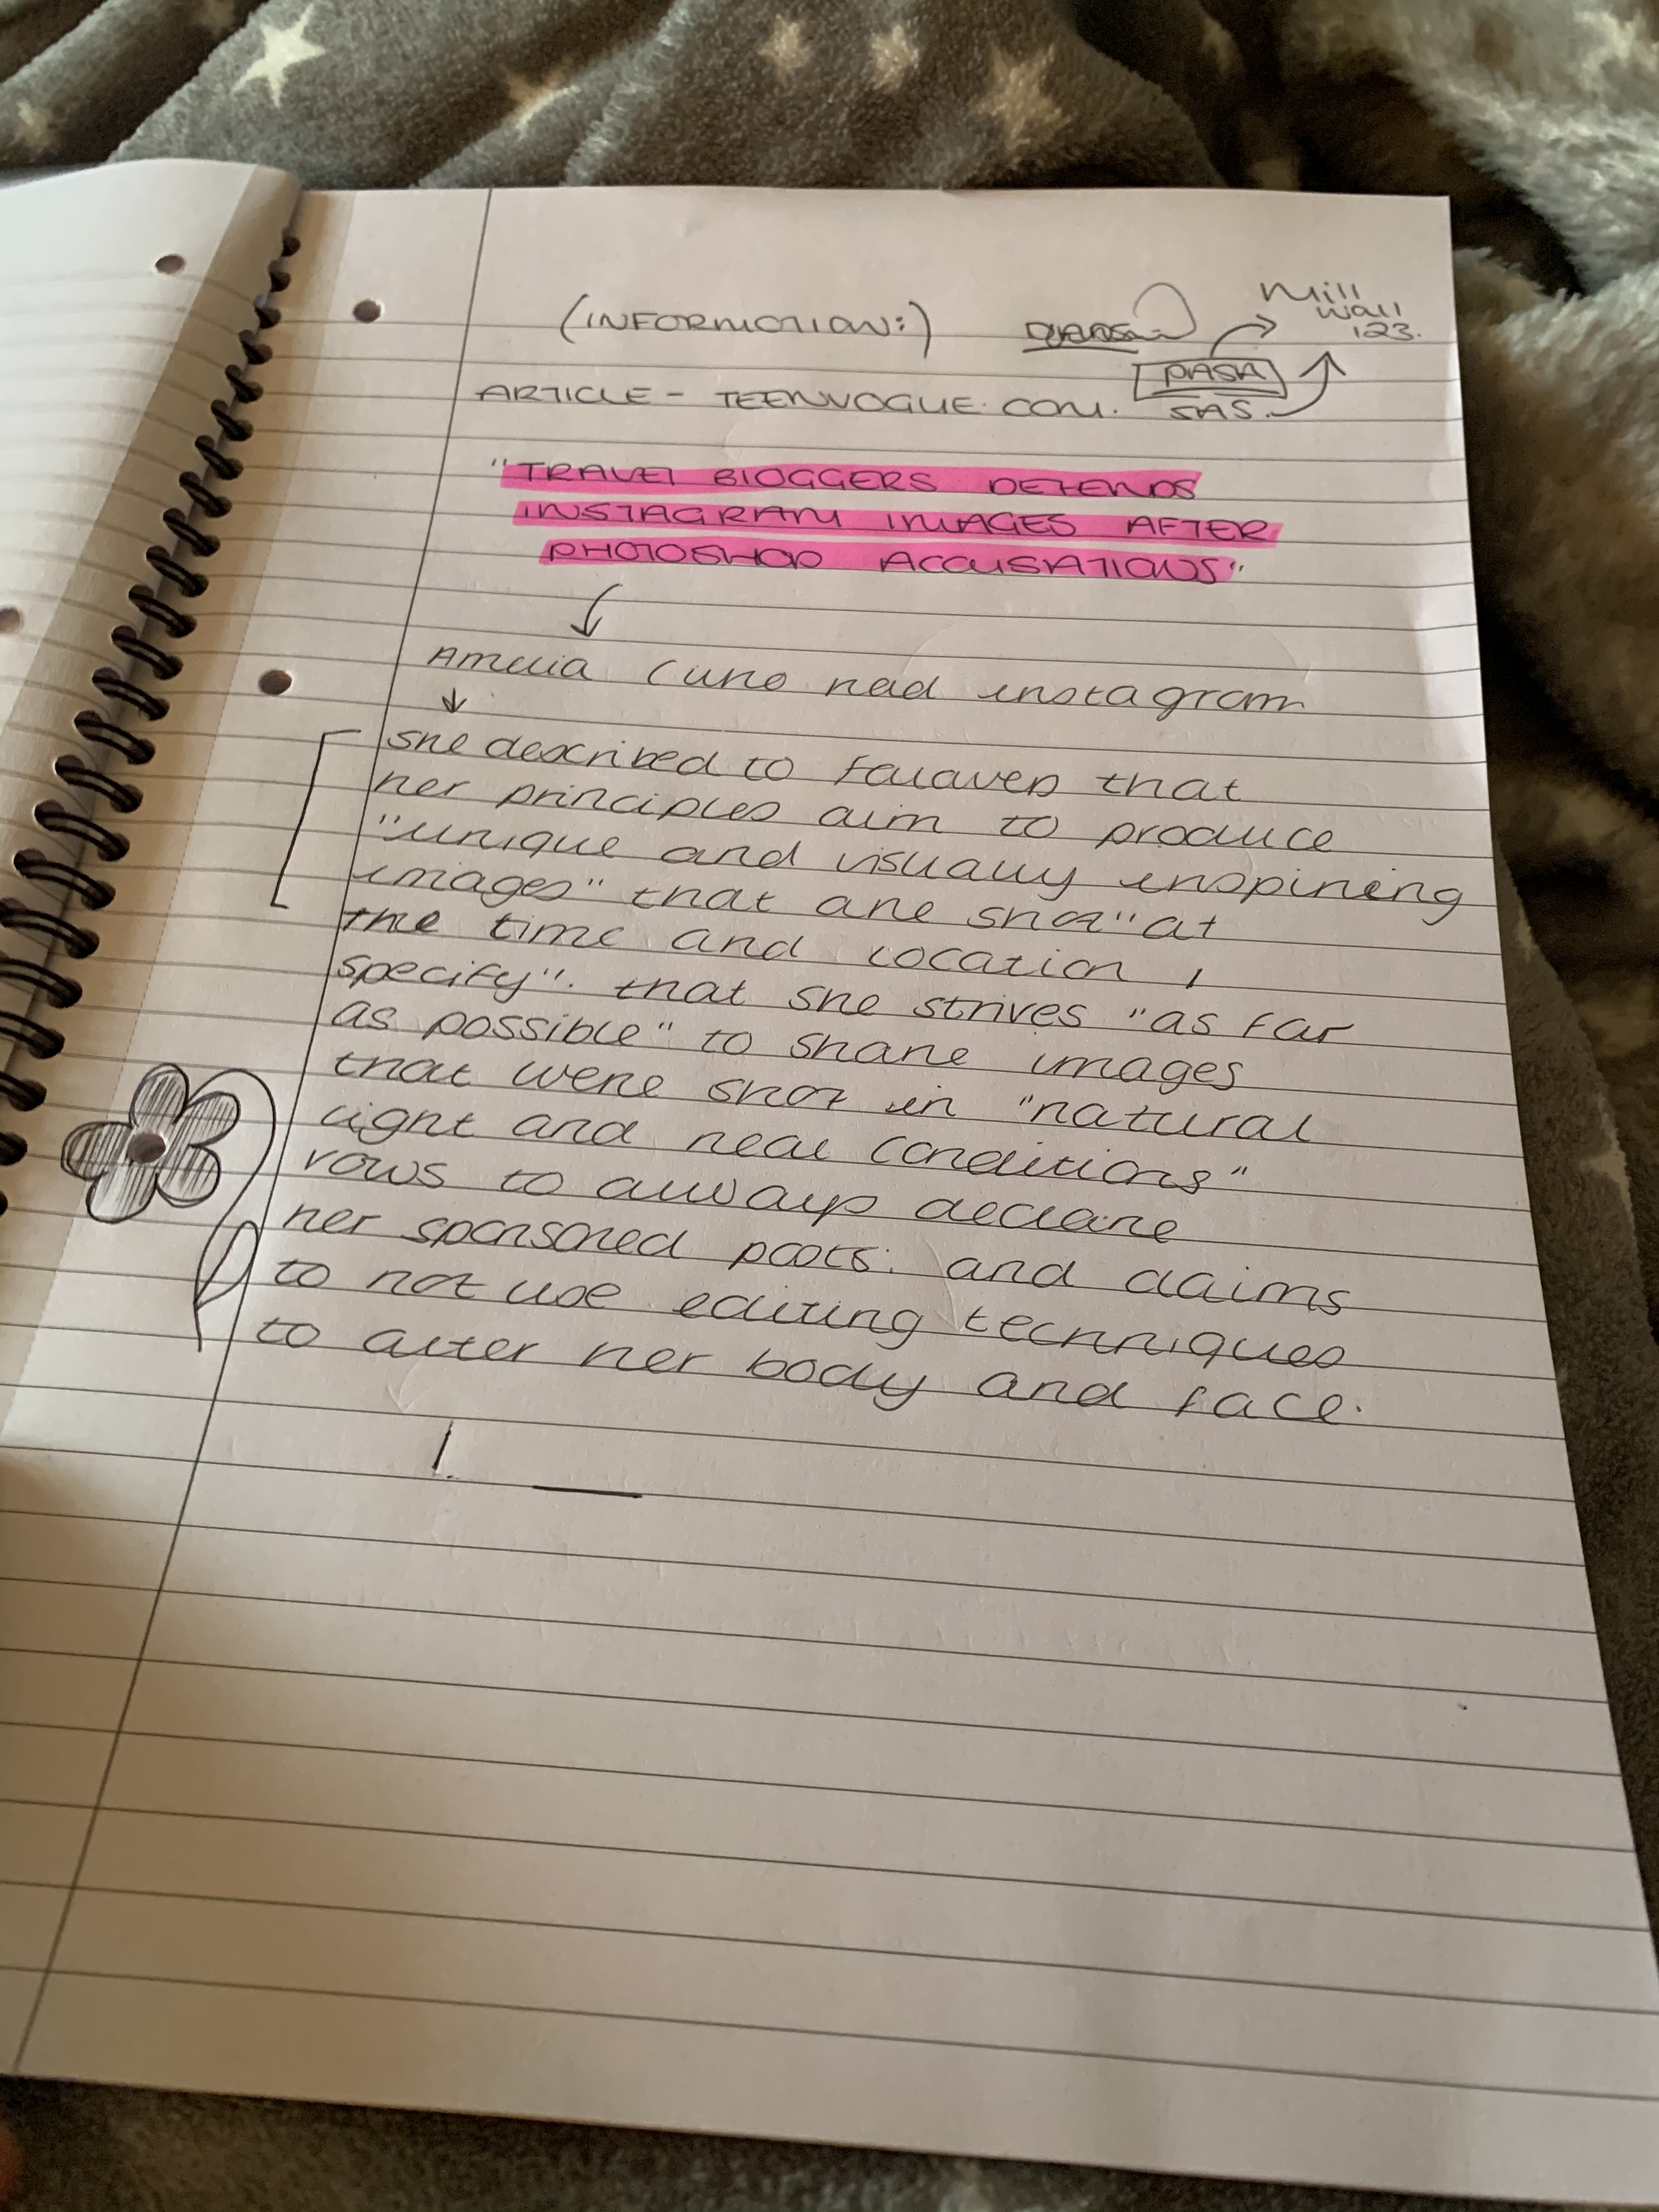 (INFORMATION:)
Mill
Wall
123.
PASA
ARTICLE - TEENVOGUE.COM. SAS.
"TRAVEL BLOGGERS DEFENDS
INSTAGRAM IMAGES AFTER
PHOTOSHOP ACCUSATIONS"
Amelia (who had instagram
she described to followers that
her principles aim to produce
"unique and visually inspiring
images" that are shot "at
the time and location I
specify". that she strives "as far
as possible" to share images
that were shot in "natural
light and real conditions"
vows to always declare
her sponsored posts. and claims
to not use editing techniques
to alter her body and face.